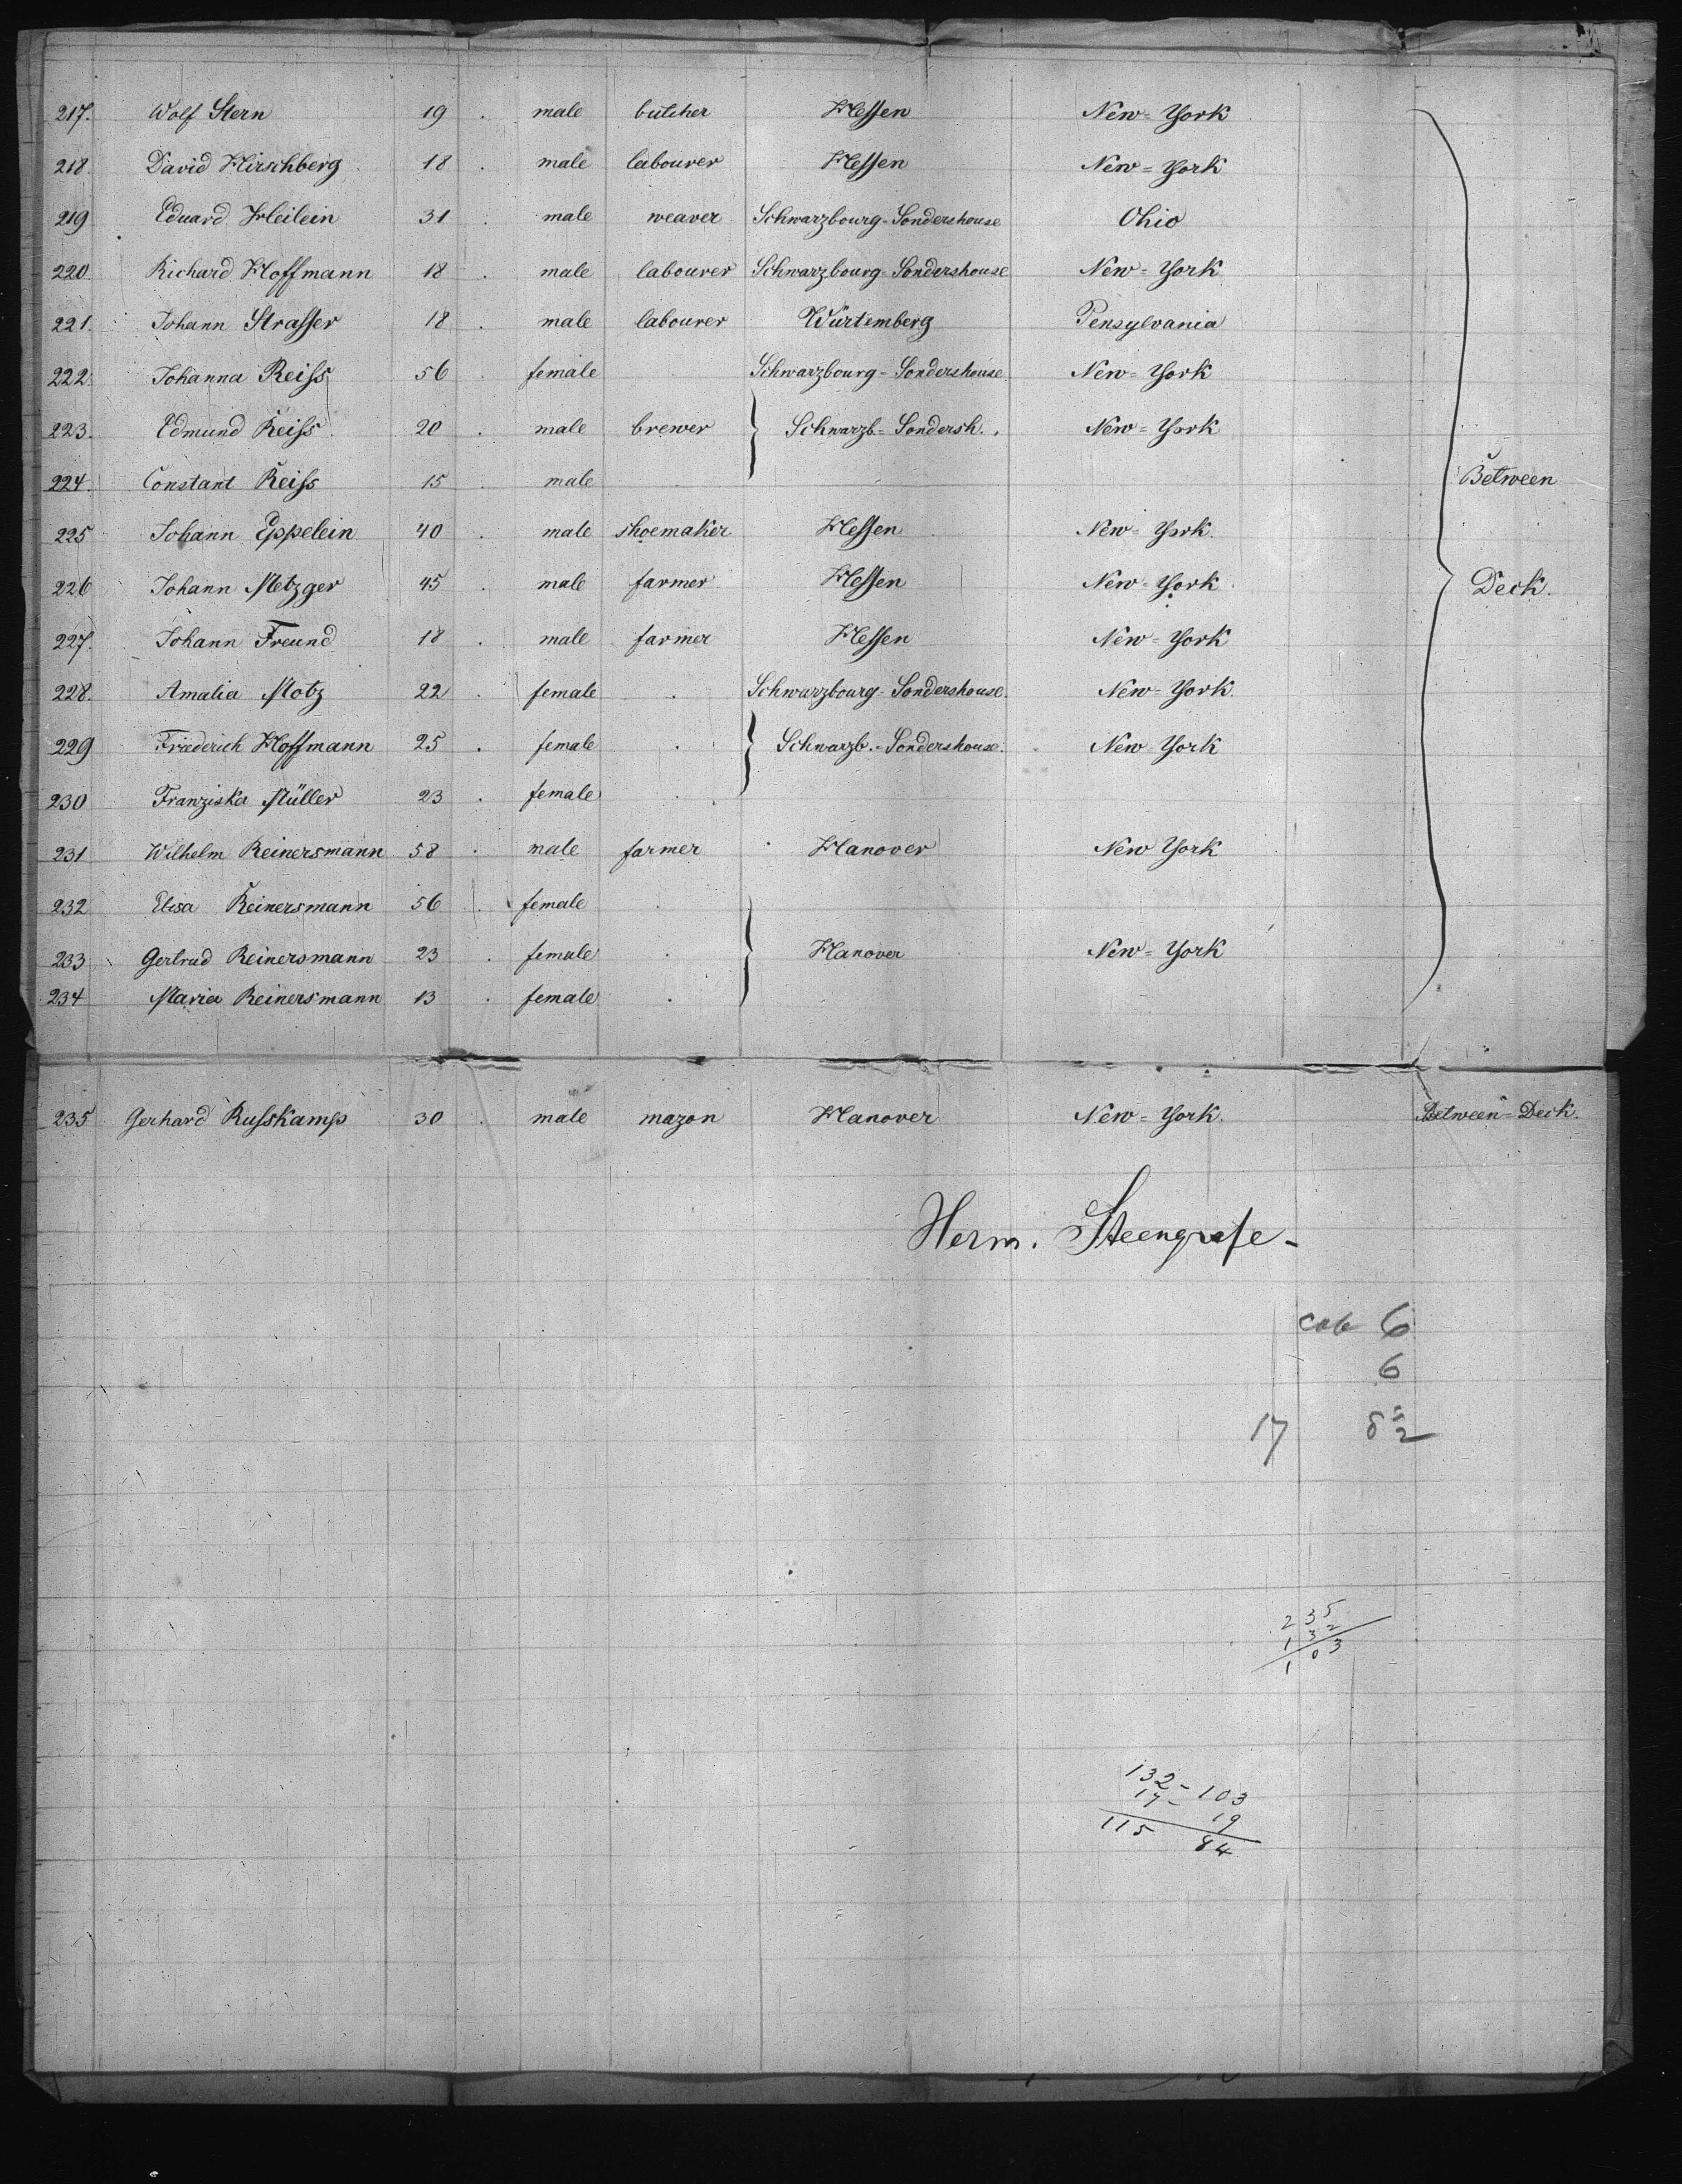 217. Wolf Stern 19 . male butcher Hessen New-York
218. David Hirschberg 18 . male labourer Hessen New=York
219 Eduard Heilein 31 . male weaver Schwarzbourg=Sondershouse Ohio
220. Richard Hoffmann 18 . male labourer Schwarzbourg=Sondershouse New=York
221. Johann Strasser 18 . male labourer Würtemberg Pensylvania
222. Johanna Reiss 56 . female Schwarzbourg-Sondershouse New=York
223. Edmund Reiss 20 . male brewer } Schwarzb=Sondersh. New=York
224. Constant Reiss 15 . male Between
225 Johann Eppelein 40 . male shoemaker Hessen New-York.
226 Johann Metzger 45 . male farmer Hessen New-York } Deck.
227. Johann Freund 18 . male farmer Hessen New-York
228. Amalia Motz 22 . female . Schwarzbourg-Sondershouse. New-York.
229 Friederich Hoffmann 25 . female . } Schwarzb.-Sondershouse. New York
230 Franziska Müller 23 . female .
231 Wilhelm Reinersmann 58 . male farmer Hanover New York
232 Elisa Reinersmann 56 . female .
233 Gertrud Reinersmann 23 . female . } Hanover New=York
234 Maria Reinersmann 13 . female .
235 Gerhard Russkamp 30 . male mazon Hanover New=York. Between=Deck.
Herm. Steengrafe-
cab 6
6
17
235
132
103
132 - 103
17 - 19
115 84